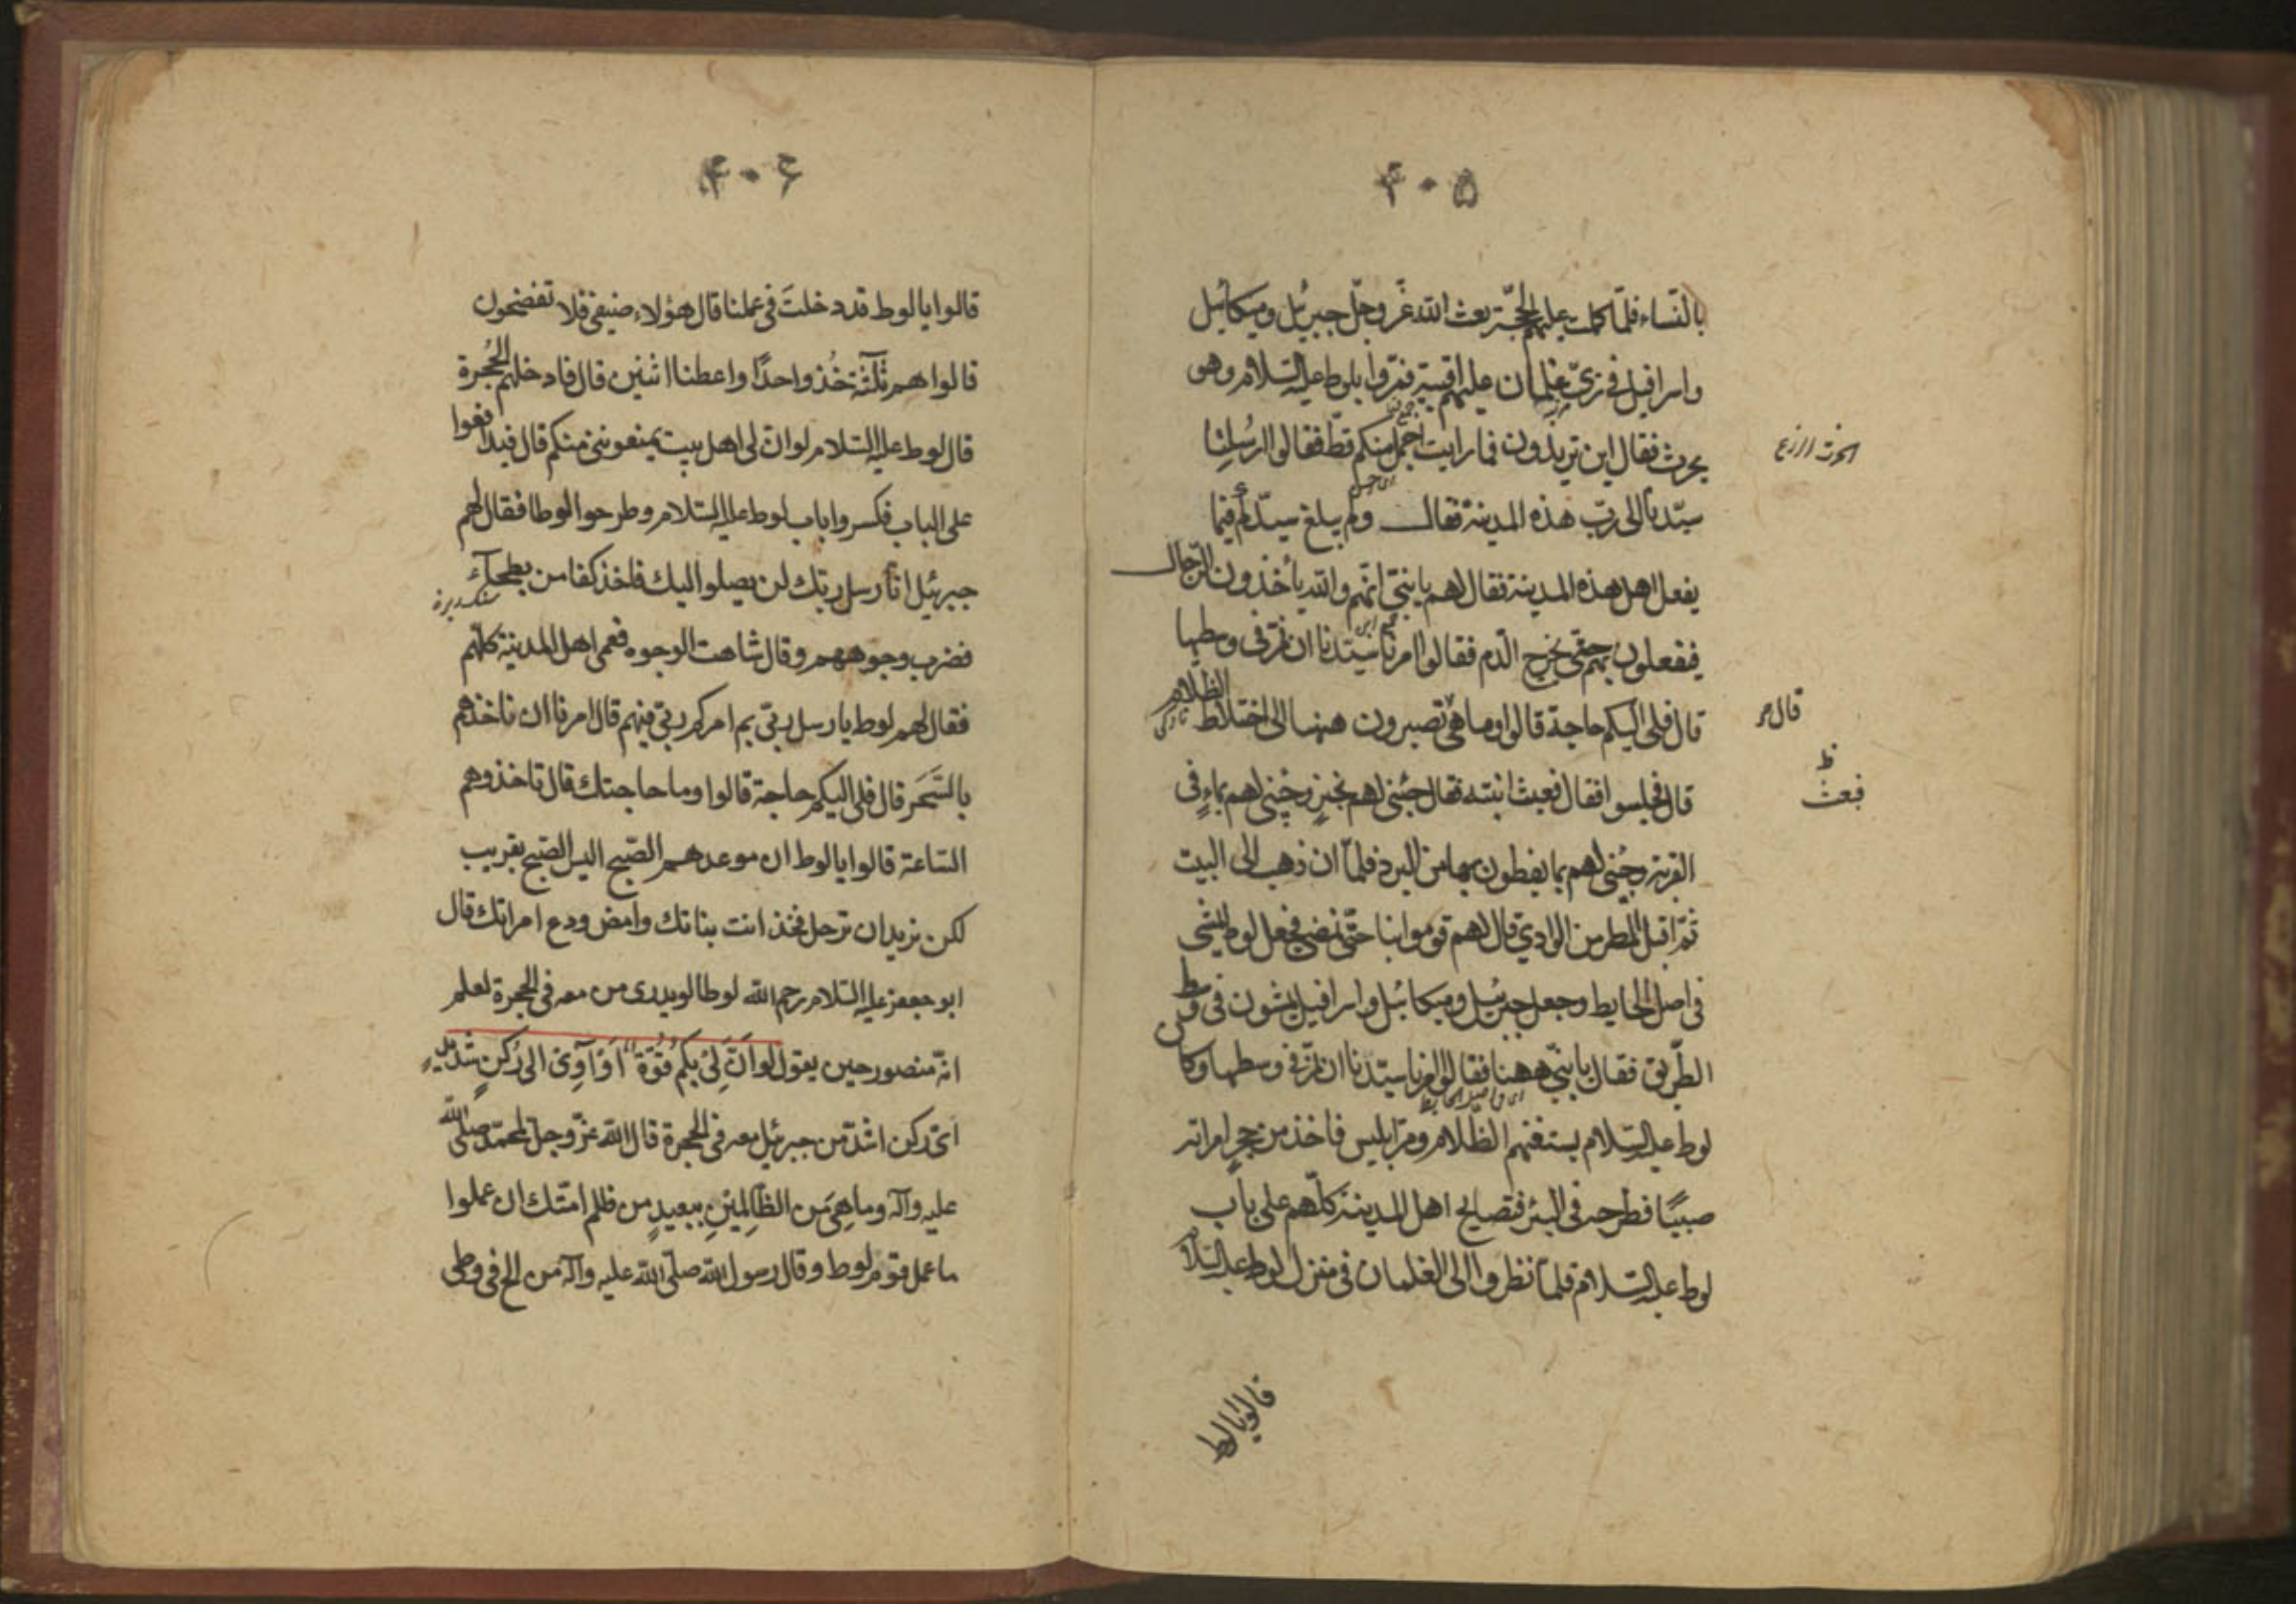 ۴۰۵
بالنّساء فلمّا كملت عليهم الحجّة بعث اللّه عزّ وجلّ جبرئيل وميكائيل
واسرافيل فى زىّ غلمان عليهم اقبية فمرّوا بلوط عليه السّلام وهو
يحرث فقال اين تريدون فما رايت اجمل منكم قطّ فقالوا ارسلنا
الحرث الزرع
سيّدنا الى ربّ هذه المدينة فقال ولم يبلغ سيّدكم فيما
يفعل اهل هذه المدينة فقال لهم يا بنىّ انّهم واللّه يأخذون الرّجال
فيفعلون بهم حتّى يخرج الدّم فقالوا امرنا سيّدنا ان نمرّ فى وسطها
قال فلى اليكم حاجة قالوا وما هى تصبرون ههنا الى اختلاط الظلام
قال فجلسوا فقال فبعث ابنته فقال جيئى لهم بخبز وجيئى لهم بماء فى
فبعث ظ
القربة وجيئى لهم بما يغطون بها من البرد فلمّا ان ذهب الى البيت
ثمّ اقبل المطر من الوادى قال لهم قوموا بنا حتّى نمضى فجعل لوط يمشى
فى اصل الحايط وجعل جبرئيل وميكائيل واسرافيل يمشون فى وسط
الطّريق فقال يا بنىّ ههنا فقالوا امرنا سيّدنا ان نمرّ فى وسطها وكان
لوط عليه السّلام يستغنم الظّلام ومرّ ابليس فاخذ من حجر امراته
صبيّا فطرحه فى البئر فتصايح اهل المدينة كلّهم على باب
لوط عليه السّلام فلمّا نظروا الى الغلمان فى منزل لوط عليه السّلام
قالوا يا لوط
۴۰۶
قالوا يا لوط قد دخلتَ فى عملنا قال هؤلاء ضيفى فلا تفضحون
قالوا هم ثلٰثة خُذ واحدًا واعطنا اثنين قال فادخلهم الحُجرة
قال لوط عليه السّلام لو انّ لى اهل بيت يمنعوننى منكم قال فتدافعوا
على الباب فكسروا باب لوط عليه السّلام وطرحوا لوطا فقال لهم
جبرئيل انّا رسل ربّك لن يصلوا اليك فاخذ كفا من بطحآء
سنكريزة
فضرب وجوههم وقال شاهت الوجوه فعمى اهل المدينة كلّهم
فقال لهم لوط يا رسل ربّى بم امركم ربّى فيهم قال امرنا ان ناخذهم
بالسَّحَر قال فلى اليكم حاجة قالوا وما حاجتك قال تاخذوهم
السّاعة قالوا يا لوط ان موعدهم الصّبح اليس الصّبح بقريب
لكن نريد ان ترحل فخذ انت بناتك وامض ودع امراتك قال
ابو جعفر عليه السّلام رحم اللّه لوطا لو يدرى من معه فى الحجرة لعلم
انّه منصور حين يقول لَو اَنَّ لِىْ بِكُم قُوَّةً اَوْ اٰوِىْ الىٰ رُكنٍ شَديدٍ
اىّ ركن اشدّ من جبرئيل معه فى الحجرة قال اللّه عزّ وجلّ لمحمّد صلّى اللّه
عليه وآله وما هِىَ مِن الظّالِمِيْنِ بِبَعيدٍ من ظلم امّتك ان عملوا
ما عمل قوم لوط وقال رسول اللّه صلّى اللّه عليه وآله من الح فى وطى